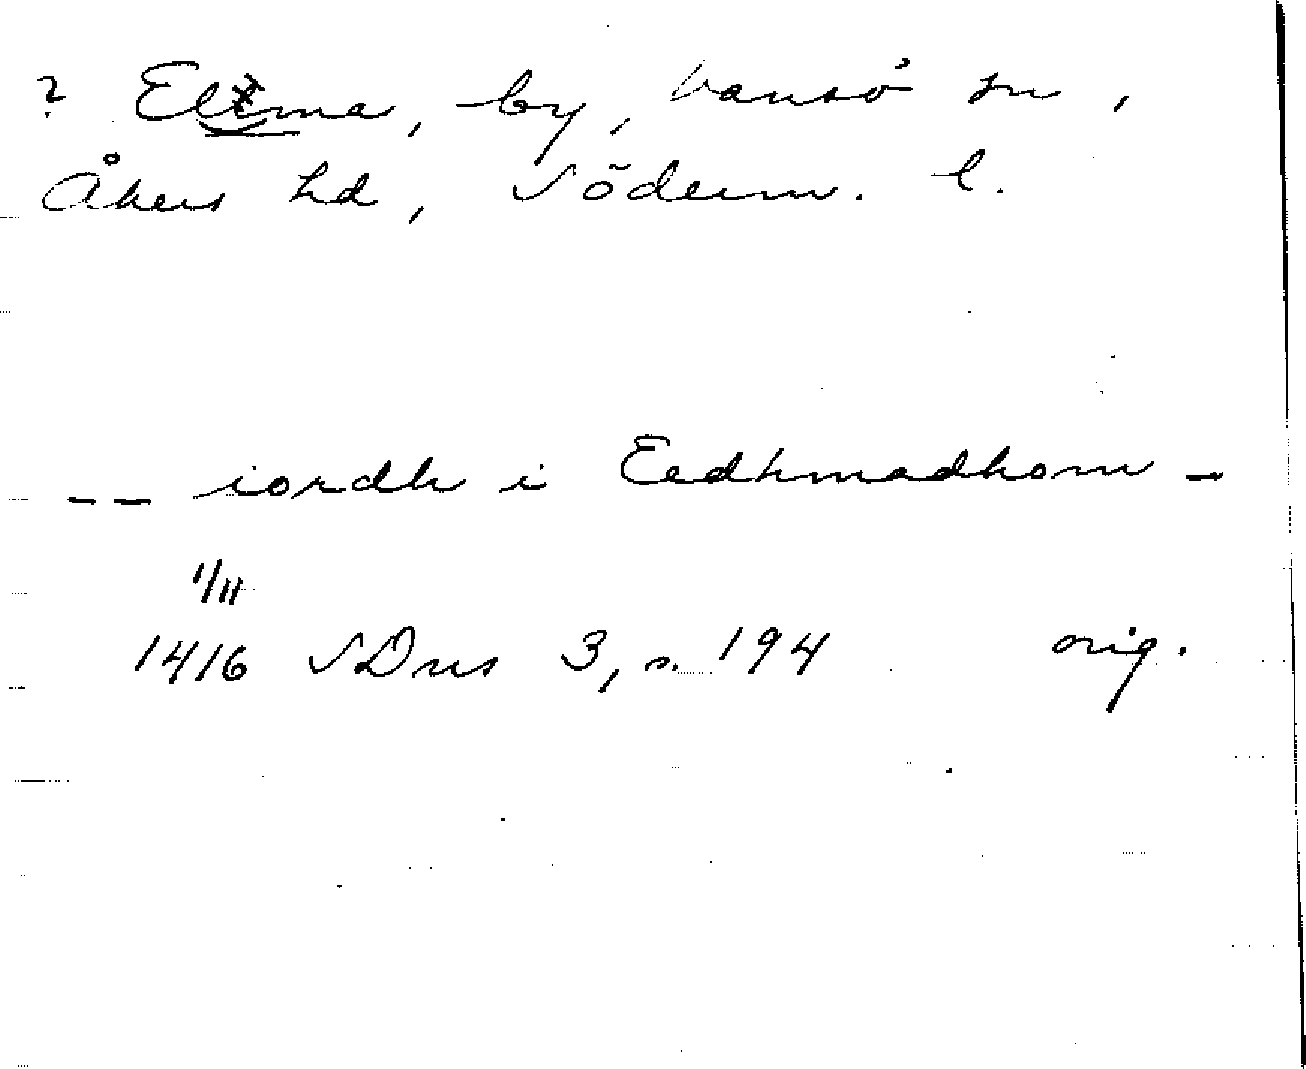 ? Eltma, by, Vansö sn,
Åkers hd, Söderm. l.
-- iordh i Eedhmadhom -
1/11
1416 SDns 3, s. 194 orig.